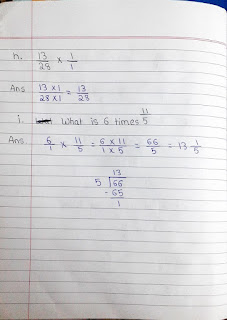 h. 13/28 × 1/1
Ans 13 × 1 / 28 × 1 = 13/28
i. What is 6 times 11/5
Ans. 6/1 × 11/5 = 6 × 11 / 1 × 5 = 66/5 = 13 1/5
13
5 66
- 65
1